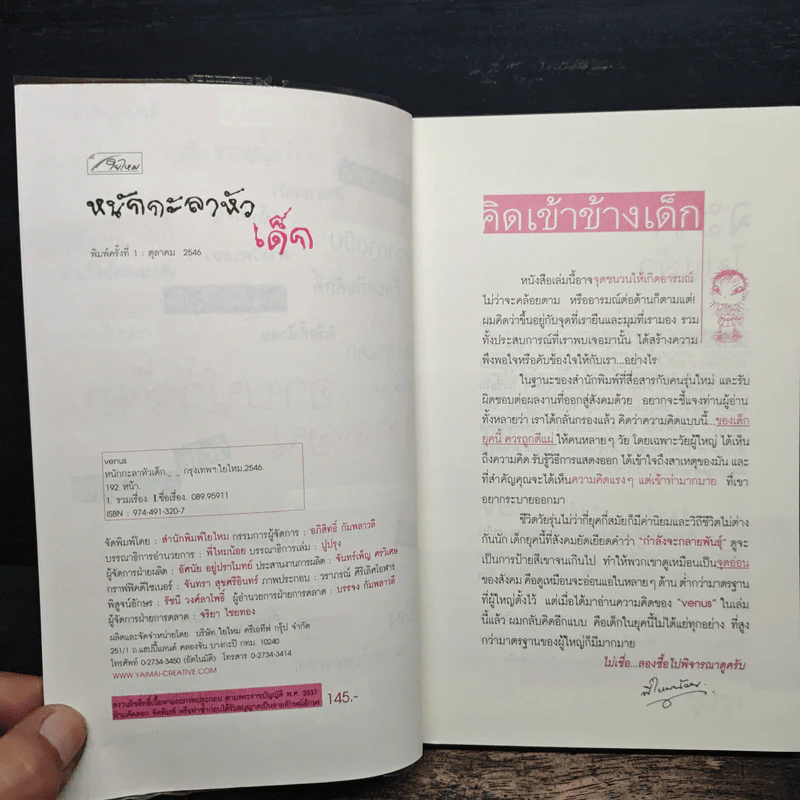 ใยไหม
หนักกะลาหัว
เด็ก
พิมพ์ครั้งที่ 1 : ตุลาคม 2546
venus
หนักกะลาหัวเด็ก. กรุงเทพฯ:ใยไหม,2546.
192 หน้า.
1. รวมเรื่อง. I ชื่อเรื่อง. 089.95911
ISBN : 974-491-320-7
จัดพิมพ์โดย : สำนักพิมพ์ใยไหม กรรมการผู้จัดการ : อภิสิทธิ์ กัมพลาวลี
บรรณาธิการอำนวยการ : พี่ไหมน้อย บรรณาธิการเล่ม : ปูปรุง
ผู้จัดการฝ่ายผลิต : อัศนัย อยู่ปราโมทย์ ประสานงานการผลิต : จันทร์เพ็ญ ศรวิเศษ
กราฟฟิคดีไซเนอร์ : จันทรา สุขศรีอินทร์ ภาพประกอบ : วราภรณ์ ศิริเลิศโอฬาร
พิสูจน์อักษร : รัชนี วงศ์ลาโพธิ์ ผู้อำนวยการฝ่ายการตลาด : บรรจง กัมพลาวลี
ผู้จัดการฝ่ายการตลาด : จริยา ไชยทอง
ผลิตและจัดจำหน่ายโดย บริษัท ใยไหม ครีเอทีฟ กรุ๊ป จำกัด
251/1 ถ.แฮปปี้แลนด์ คลองจั่น บางกะปิ กทม. 10240
โทรศัพท์ 0-2734-3450 (อัตโนมัติ) โทรสาร 0-2734-3414
WWW.YAIMAI-CREATIVE.COM
สงวนลิขสิทธิ์เนื้อหาและภาพประกอบ ตามพระราชบัญญัติ พ.ศ. 2537
ห้ามคัดลอก จัดพิมพ์ หรือทำซ้ำก่อนได้รับอนุญาตเป็นลายลักษณ์อักษร
145.-
คิดเข้าข้างเด็ก
หนังสือเล่มนี้อาจจุดชนวนให้เกิดอารมณ์
ไม่ว่าจะคล้อยตาม หรืออารมณ์ต่อต้านก็ตามแต่!
ผมคิดว่าขึ้นอยู่กับจุดที่เรายืนและมุมที่เรามอง รวม
ทั้งประสบการณ์ที่เราพบเจอมานั้น ได้สร้างความ
พึงพอใจหรือคับข้องใจให้กับเรา...อย่างไร
ในฐานะของสำนักพิมพ์ที่สื่อสารกับคนรุ่นใหม่ และรับ
ผิดชอบต่อผลงานที่ออกสู่สังคมด้วย อยากจะชี้แจงท่านผู้อ่าน
ทั้งหลายว่า เราได้กลั่นกรองแล้ว คิดว่าความคิดแบบนี้...ของเด็ก
ยุคนี้ ควรถูกตีแผ่ ให้คนหลายๆ วัย โดยเฉพาะวัยผู้ใหญ่ ได้เห็น
ถึงความคิด รับรู้วิธีการแสดงออก ได้เข้าใจถึงสาเหตุของมัน และ
ที่สำคัญคุณจะได้เห็นความคิดแรงๆ แต่เข้าท่ามากมาย ที่เขา
อยากระบายออกมา
ชีวิตวัยรุ่นไม่ว่ากี่ยุคกี่สมัยก็มีค่านิยมและวิถีชีวิตไม่ต่าง
กันนัก เด็กยุคนี้ที่สังคมยัดเยียดคำว่า "กำลังจะกลายพันธุ์" ดูจะ
เป็นการป้ายสีเขาจนเกินไป ทำให้พวกเขาดูเหมือนเป็นจุดอ่อน
ของสังคม คือดูเหมือนจะอ่อนแอในหลายๆ ด้าน ต่ำกว่ามาตรฐาน
ที่ผู้ใหญ่ตั้งไว้ แต่เมื่อได้มาอ่านความคิดของ "venus" ในเล่ม
นี้แล้ว ผมกลับคิดอีกแบบ คือเด็กในยุคนี้ไม่ได้แย่ทุกอย่าง ที่สูง
กว่ามาตรฐานของผู้ใหญ่ก็มีมากมาย
ไม่เชื่อ...ลองซื้อไปพิจารณาดูครับ
พี่ไหมน้อย